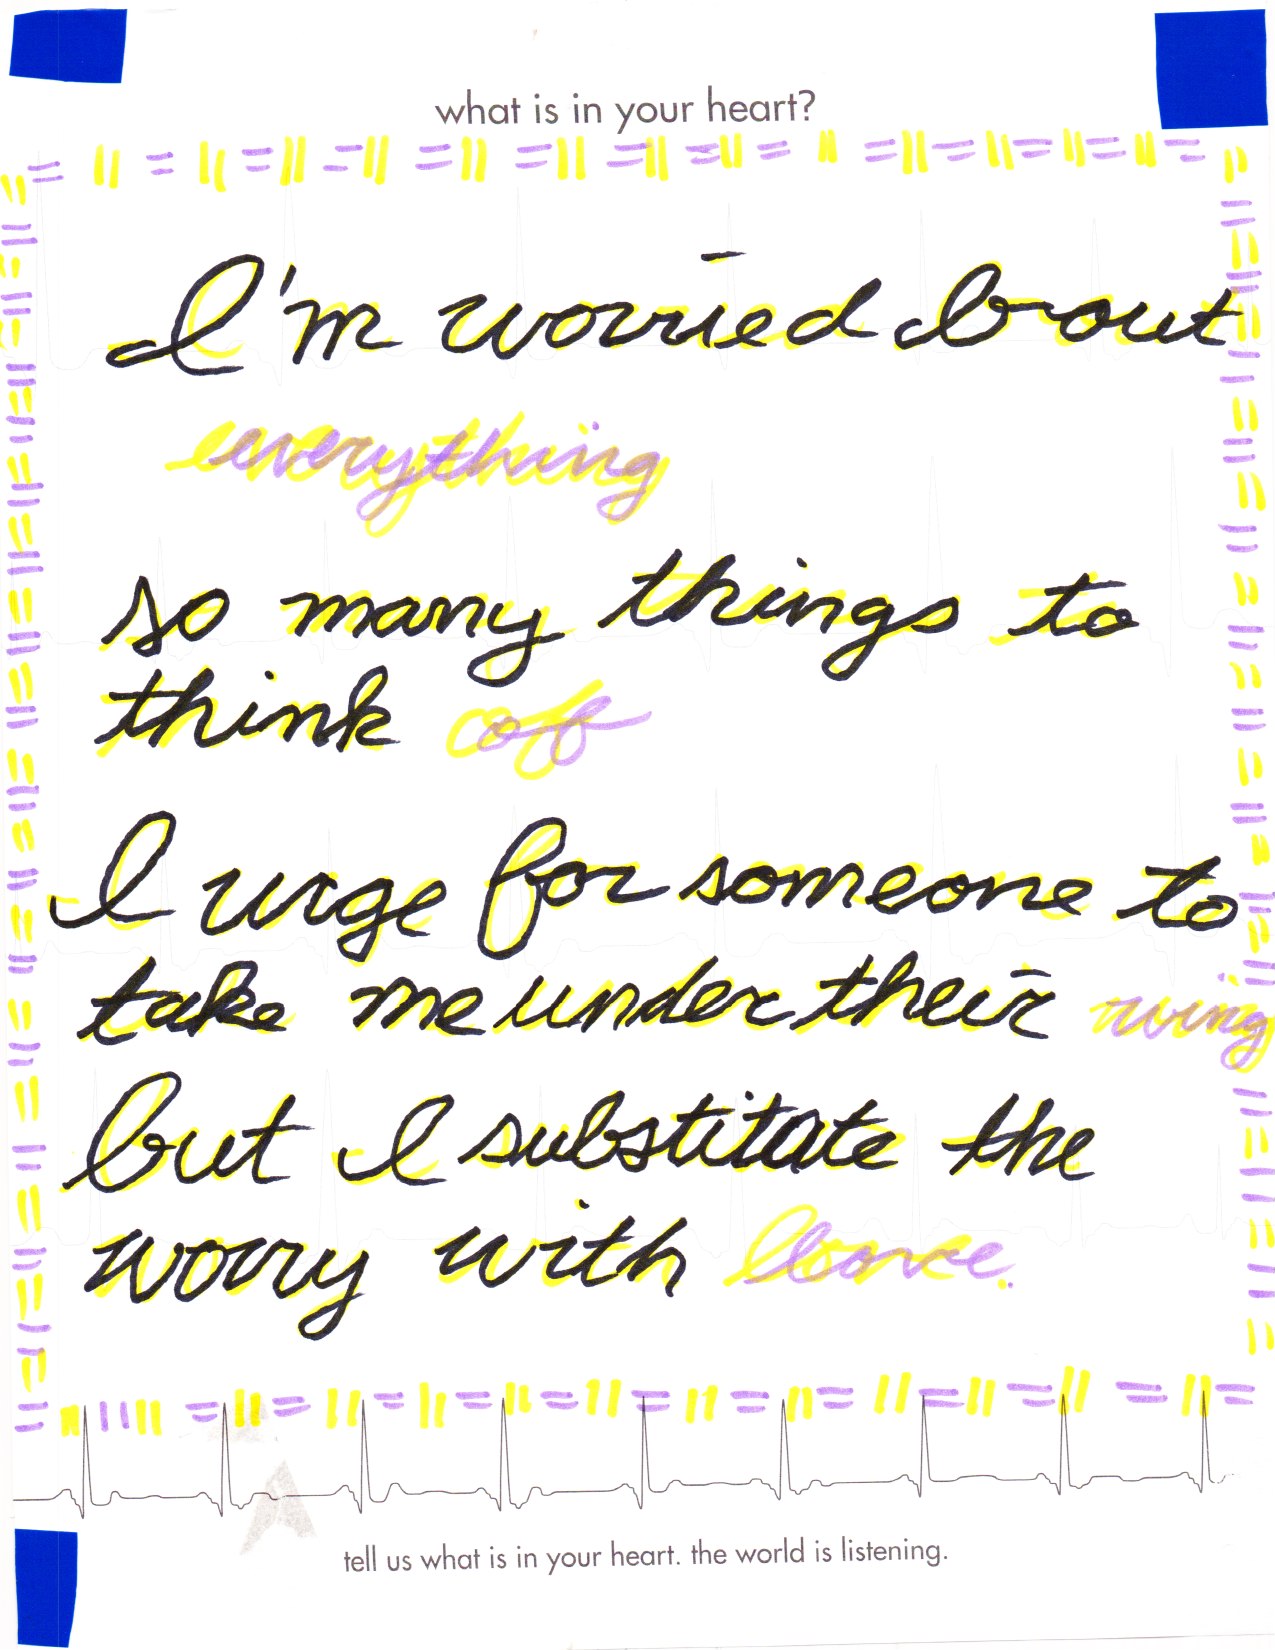 what is in your heart?
I'm worried bout
everything
so many things to
think of
I urge for someone to
take me under their wing
but I substitate the
worry with love.
tell us what is in your heart. the world is listening.